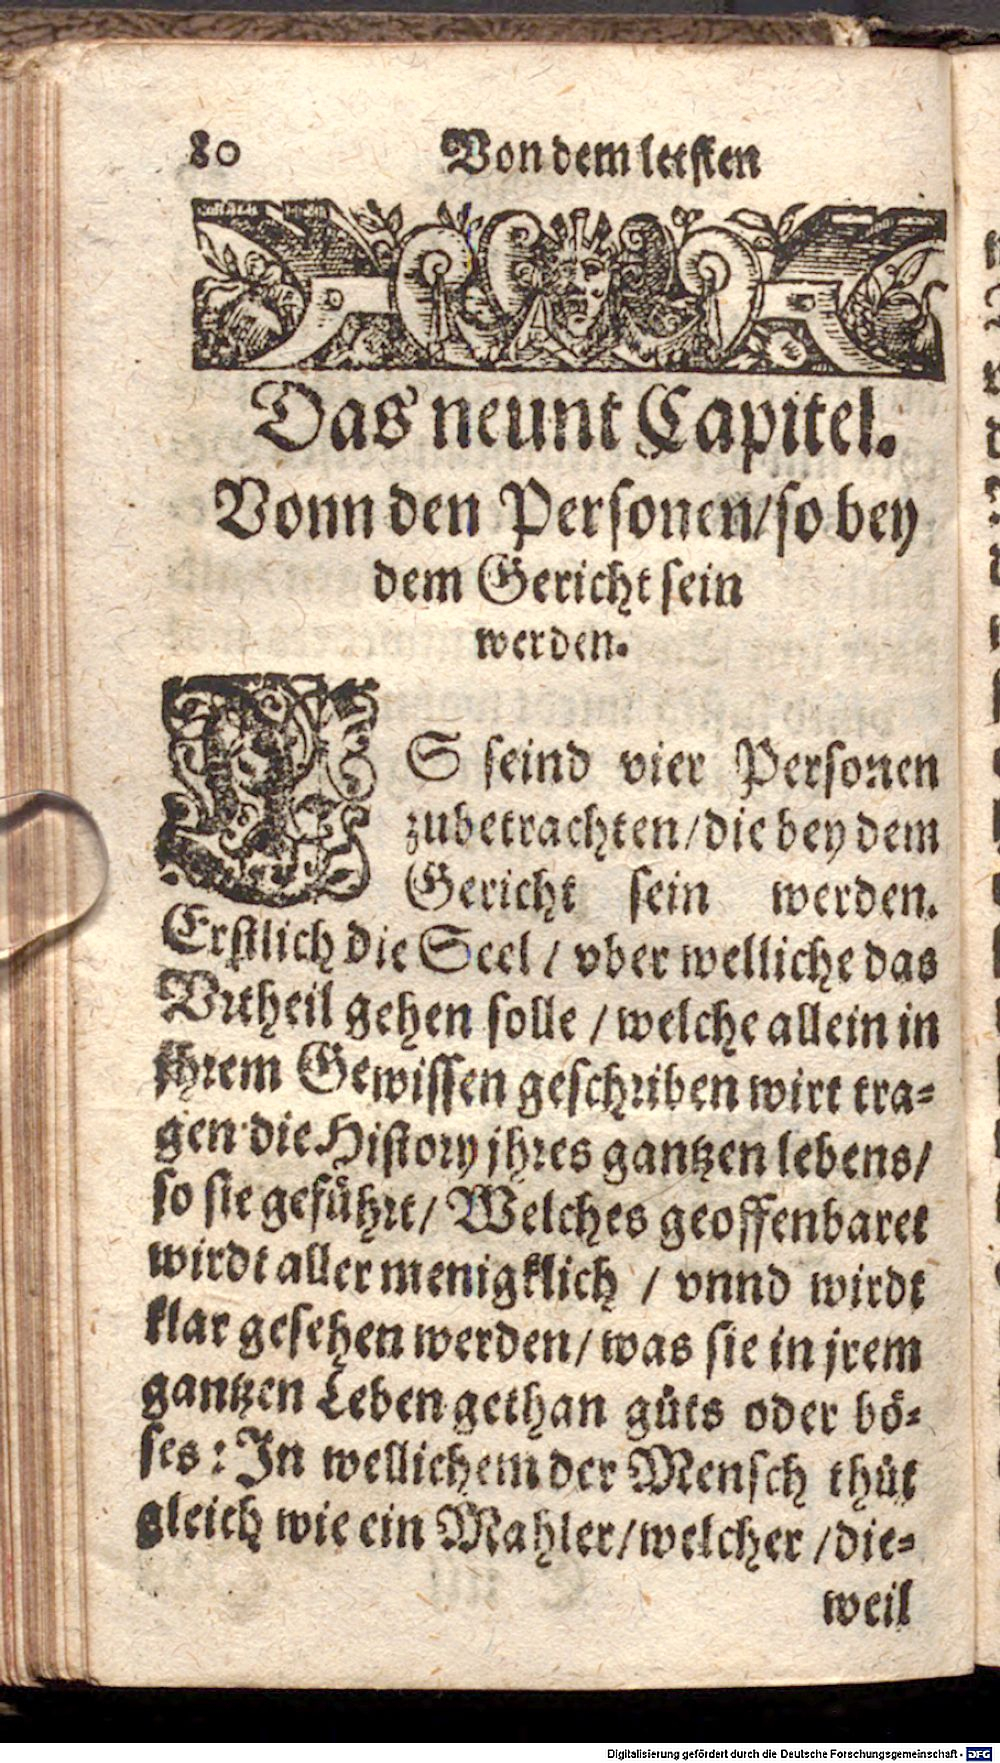 80 Von dem letsten
Das neunt Capitel.
Vonn den Personen/ so bey
dem Gericht sein
werden.
ES seind vier Personen
zubetrachten/ die bey dem
Gericht sein werden.
Erstlich die Seel / vber welliche das
Vrtheil gehen solle / welche allein in
jhrem Gewissen geschriben wirt tra-
gen die History jhres gantzen lebens/
so sie geführt/ Welches geoffenbaret
wirdt aller menigklich / vnnd wirdt
klar gesehen werden/ was sie in jrem
gantzen Leben gethan gůts oder bö-
ses: In wellichem der Mensch thůt
gleich wie ein Mahler/ welcher / die-
weil
Digitalisierung gefördert durch die Deutsche Forschungsgemeinschaft - DFG